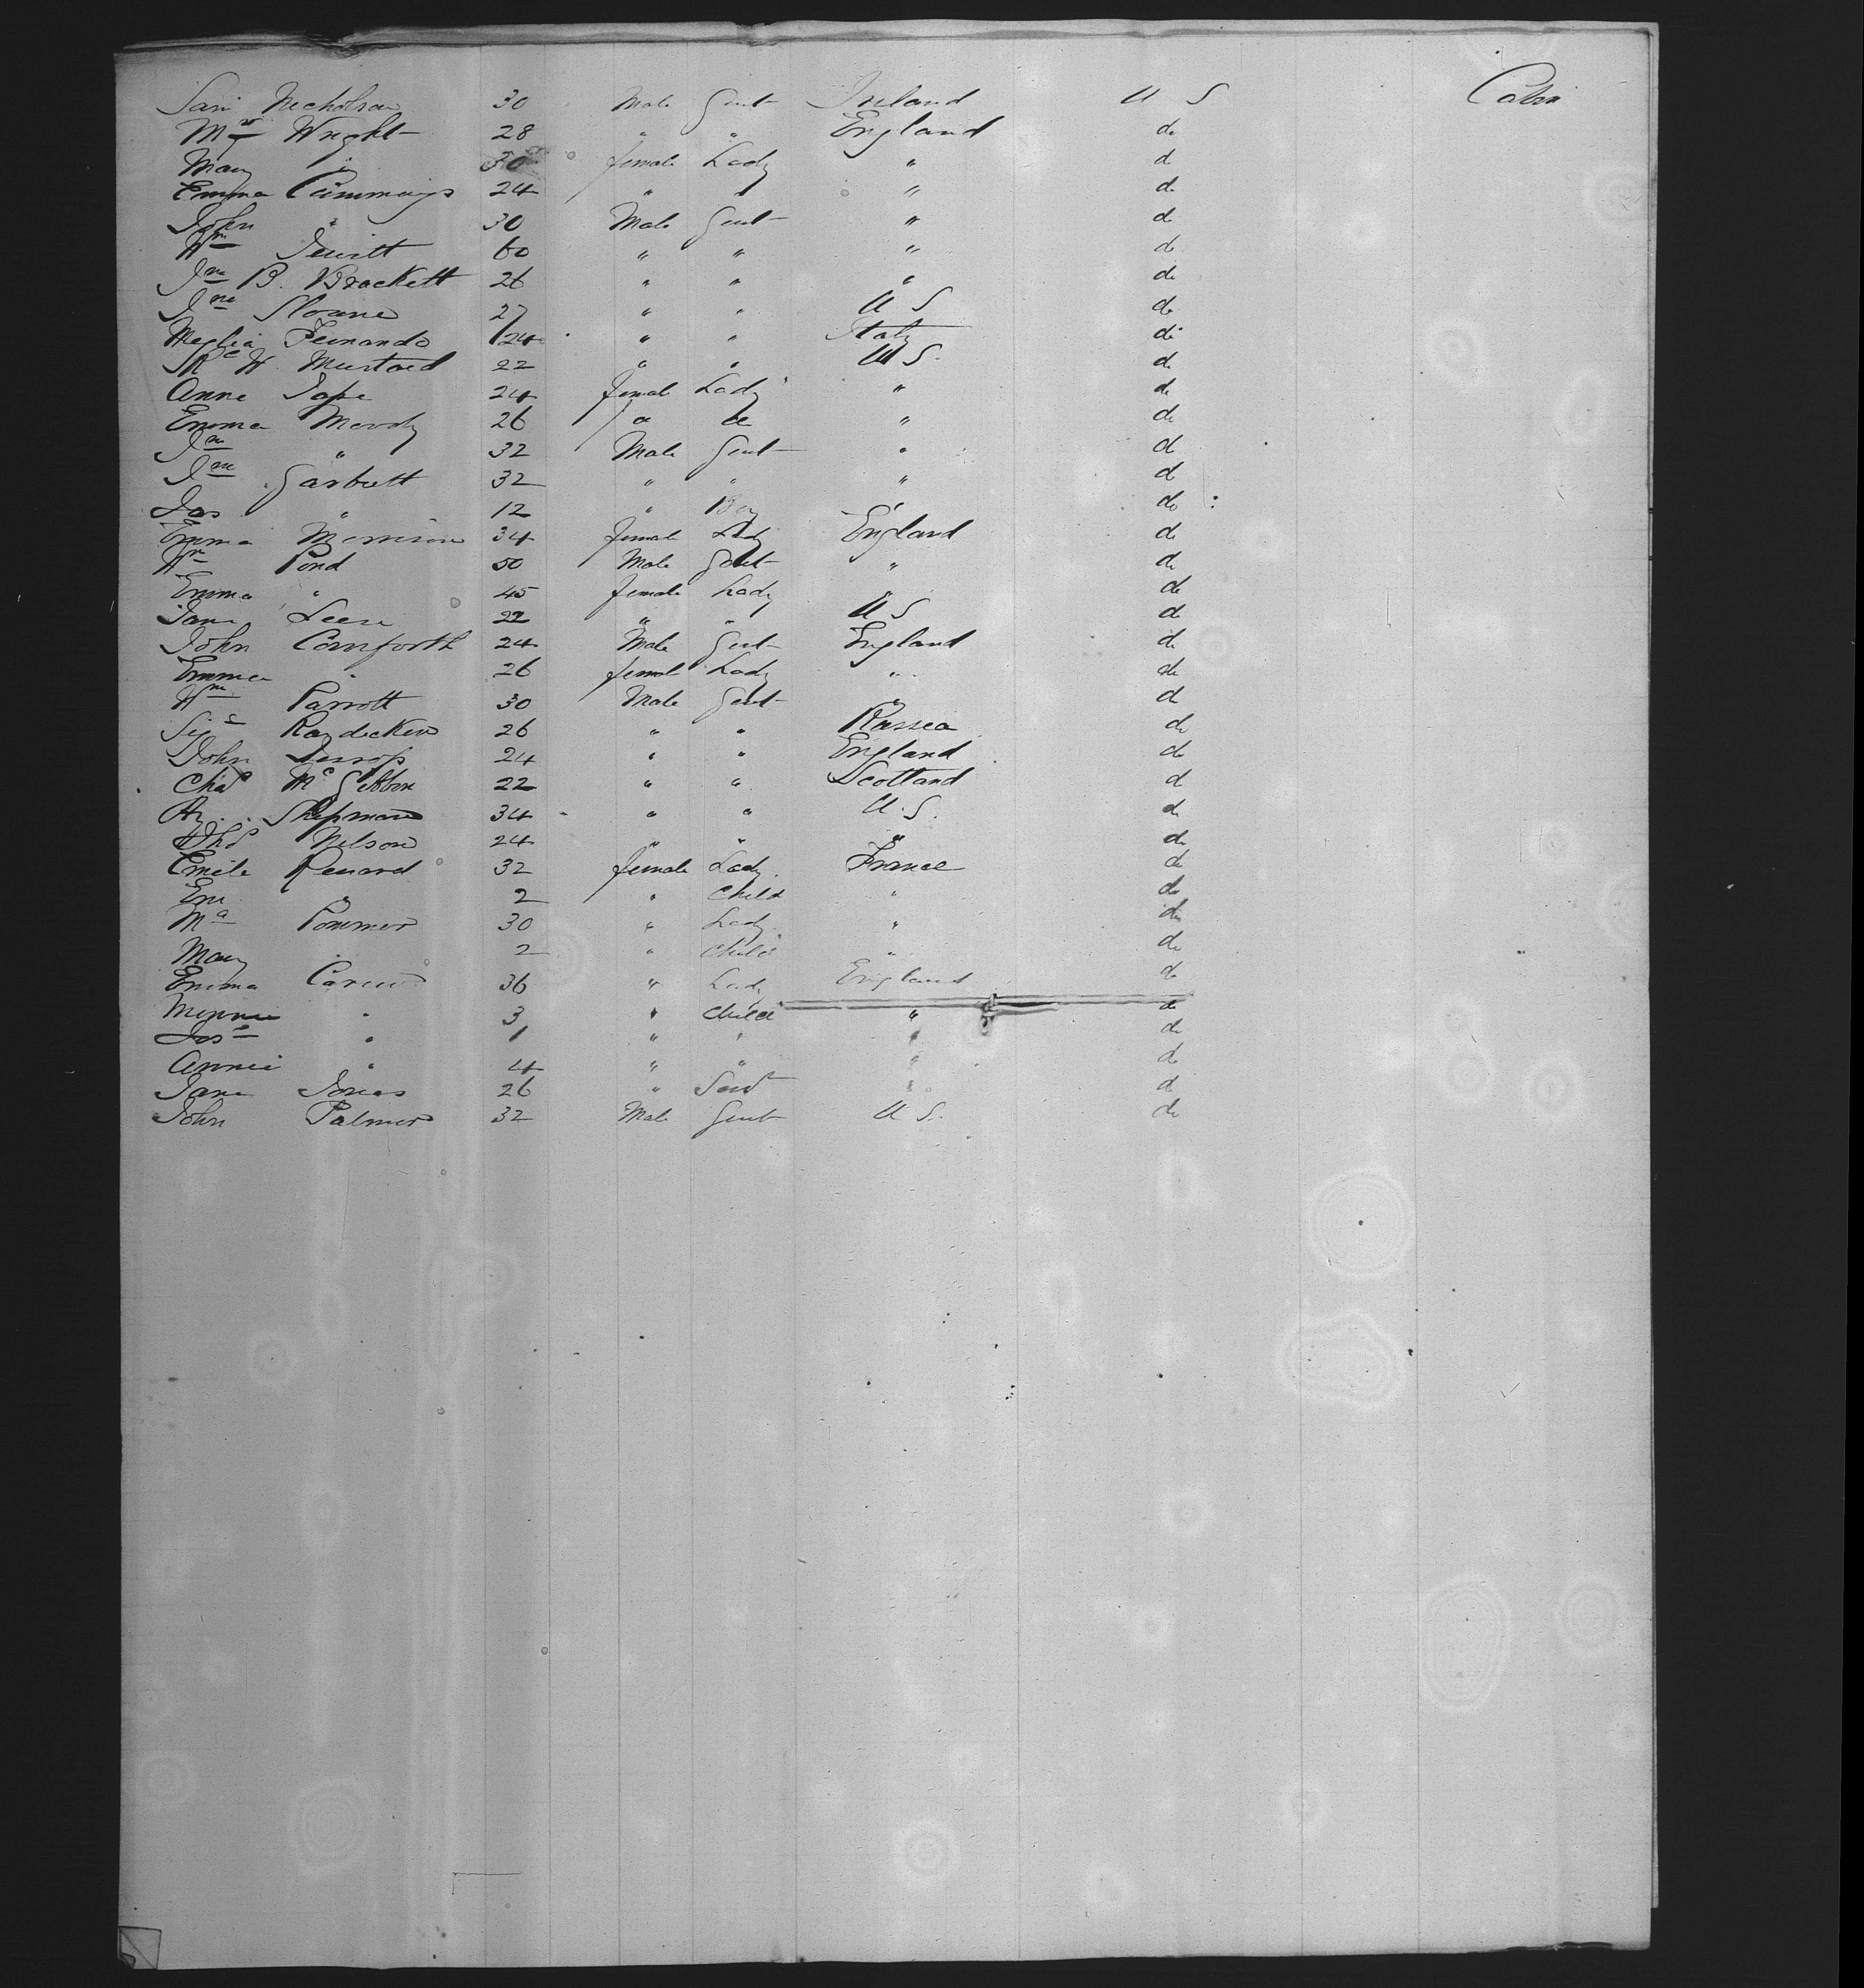 Nicholson 30 Male Gent Ireland U S Cabin
Wright 28 " " England do
Mary " 30 female Lady " do
Emma Cummings 24 " " " do
John " 30 Male Gent " do
Wm Jewitt 60 " " " do
Jno B. Brackett 26 " " " do
Jno Sloane 27 " " U S do
Meglia Fernando 24 " " Italy do
W. Mustard 22 " " U S. do
Anne Pape 24 female Lady " do
Emma Moody 26 " " " do
Jno " 32 Male Gent " do
Jno Garbutt 32 " " " do
Jas " 12 " Boy " do
Emma Morrison 34 female Lady England do
Wm Pond 50 Male Gent " do
Emma " 45 female Lady " do
Jane 22 " " U S do
John Cornforth 24 Male Gent England do
Emma " 26 female Lady " do
Wm Parrott 30 Male Gent " do
26 " " Russia do
John Jessop 24 " " England do
Chas McGibbon 22 " " Scotland do
Shipman 34 " " U.S. do
Nelson 24 " " " do
Emile Renard 32 female Lady France do
Em " 2 " Child " do
Ma Pommer 30 " Lady " do
Mary " 2 " Child " do
Emma Carew 36 " Lady England do
Minnie " 3 " Child " do
Jos " 1 " " " do
Annie " 4 " " " do
Jane Jones 26 " Servt " do
John Palmer 32 Male Gent U S. do